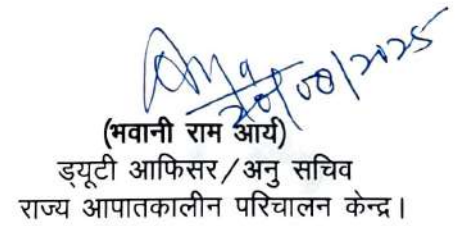 20/08/2025
(भवानी राम आर्य)
ड्यूटी आफिसर/अनु सचिव
राज्य आपातकालीन परिचालन केन्द्र।